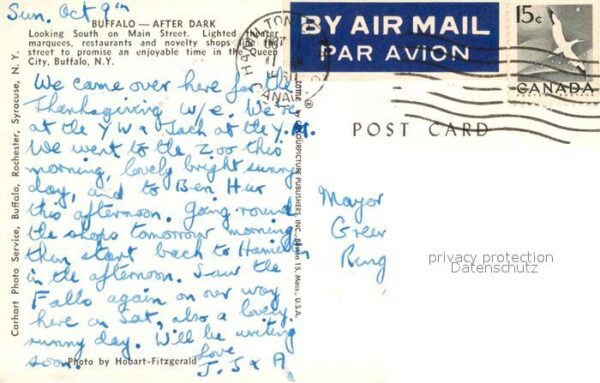 Sun. Oct 9th
BUFFALO — AFTER DARK
Looking South on Main Street. Lighted theater
marquees, restaurants and novelty shops
street to promise an enjoyable time in the Queen
City, Buffalo, N.Y.
We came over here for the
Thanksgiving w/e. We're
at the Y W & Jach at the Y.M.
We went to the Zoo this
morning, lovely bright sunny
day, and to Ben Hur
this afternoon. Going round
the shops tomorrow morning
then start back to Hamilton
in the afternoon. Saw the
Falls again on our way
here on Sat, also a lovely
sunny day. Will be writing
soon.
Love
J. J & A
Photo by Hobart-Fitzgerald
Carhart Photo Service, Buffalo, Rochester, Syracuse, N. Y.
COLOURPICTURE PUBLISHERS, INC., Boston 15, Mass., U.S.A.
®
BY AIR MAIL
PAR AVION
15c
CANADA
POST CARD
Mayor
privacy protection
Datenschutz